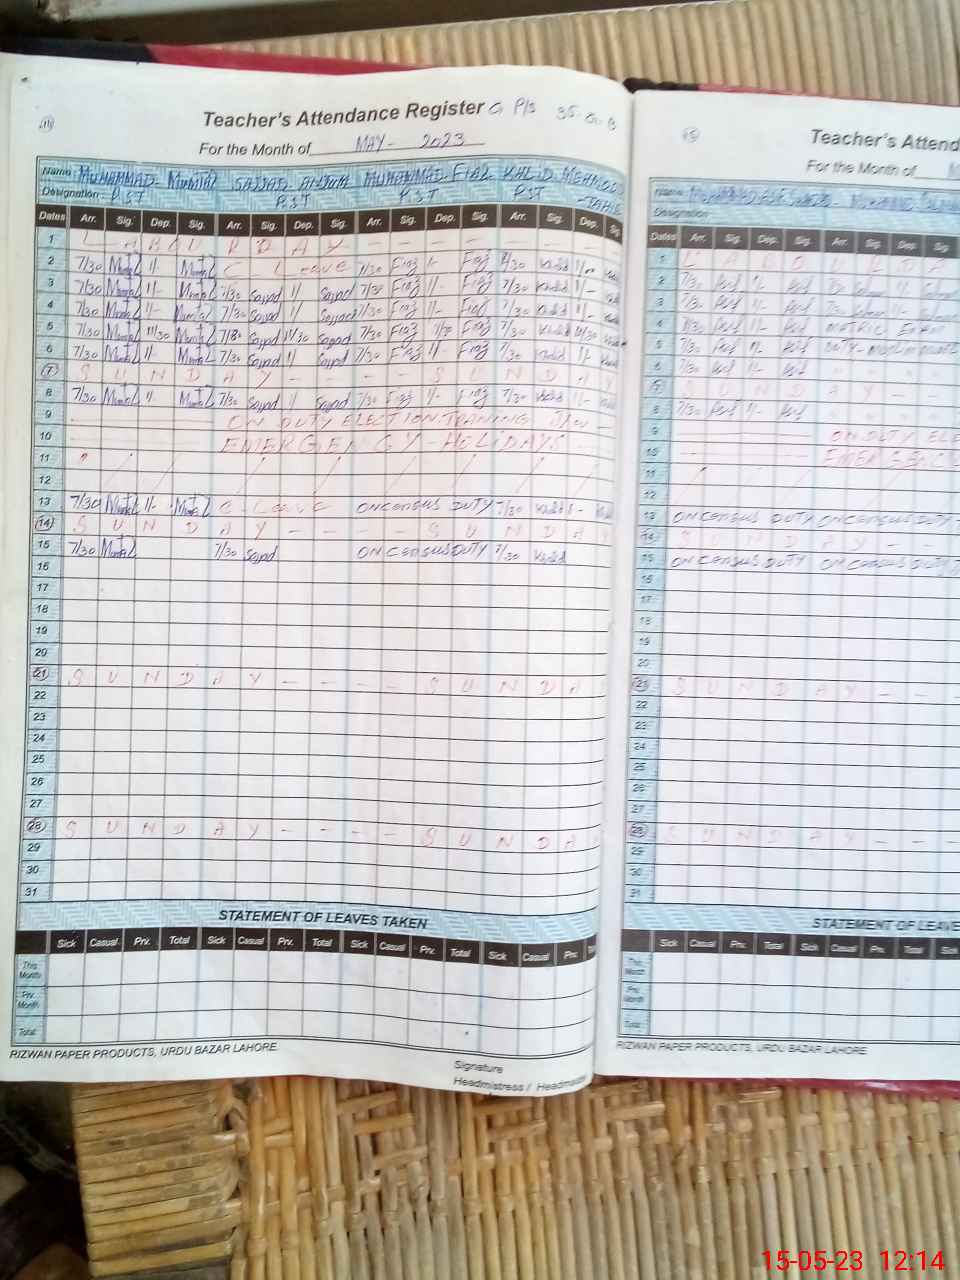 Teacher's Attendance Register G P/S 35-G-B
For the Month of MAY - 2023
Name MUHAMMAD MUMTAZ SAJJAD ANJUM MUHAMMAD FIAZ KALID MEHMOOD
Designation PST PST PST PST -TAHIR
Dates Arr. Sig. Dep. Sig. Arr. Sig. Dep. Sig. Arr. Sig. Dep. Sig. Arr. Sig. Dep. Sig.
1 L A B O U R D A Y - - - - - - -
2 7/30 Mumtaz 11- Mumtaz C - Leave 7/30 Fiaz 11- Fiaz 7/30 Khalid 11-
3 7/30 Mumtaz 11- Mumtaz 7/30 Sajjad 11 Sajjad 7/30 Fiaz 11- Fiaz 7/30 Khalid 11-
4 7/30 Mumtaz 11- Mumtaz 7/30 Sajjad 11 Sajjad 7/30 Fiaz 11- Fiaz 7/30 Khalid 11-
5 7/30 Mumtaz 11/30 Mumtaz 7/30 Sajjad 11/30 Sajjad 7/30 Fiaz 11/30 Fiaz 7/30 Khalid 11/30
6 7/30 Mumtaz 11- Mumtaz 7/30 Sajjad 11 Sajjad 7/30 Fiaz 11- Fiaz 7/30 Khalid 11-
7 S U N D A Y - - - - S U N D A Y
8 7/30 Mumtaz 11- Mumtaz 7/30 Sajjad 11 Sajjad 7/30 Fiaz 11- Fiaz 7/30 Khalid 11-
9 ON DUTY ELECTION TRAINING
10 EMERGENCY - HOLIDAYS
11
12
13 7/30 Mumtaz 11- Mumtaz C - Leave ON CENSUS DUTY 7/30 Khalid
14 S U N D A Y - - - - S U N D A Y
15 7/30 Mumtaz 7/30 Sajjad ON CENSUS DUTY 7/30 Khalid
16
17
18
19
20
21 S U N D A Y - - - - S U N D A
22
23
24
25
26
27
28 S U N D A Y - - - - S U N D A Y
29
30
31
STATEMENT OF LEAVES TAKEN
Sick Casual Prv. Total Sick Casual Prv. Total Sick Casual Prv. Total Sick Casual Prv.
This Month
Prv. Month
Total
RIZWAN PAPER PRODUCTS, URDU BAZAR LAHORE.
Signature
Headmistress / Headmaster
Teacher's Attend
For the Month of
Name
Designation
Dates Arr. Sig. Dep. Sig. Arr. Sig. Dep. Sig.
1 L A B O U R D A
2 7/30 11-
3 7/30 11-
4 7/30 11- METRIC EXAM
5 7/30 DUTY
6 7/30 11-
7 S U N D A Y - -
8 7/30 11-
9 ON DUTY ELE
10 EMERGENC
11
12
13 ON CENSUS DUTY ON CENSUS DUTY
14 S U N D A Y - -
15 ON CENSUS DUTY ON CENSUS DUTY
16
17
18
19
20
21 S U N D A Y - -
22
23
24
25
26
27
28 S U N D A Y - - -
29
30
31
STATEMENT OF LEAVE
Sick Casual Prv. Total Sick Casual Prv. Total Sick
This Month
Prv. Month
Total
RIZWAN PAPER PRODUCTS, URDU BAZAR LAHORE
15-05-23 12:14